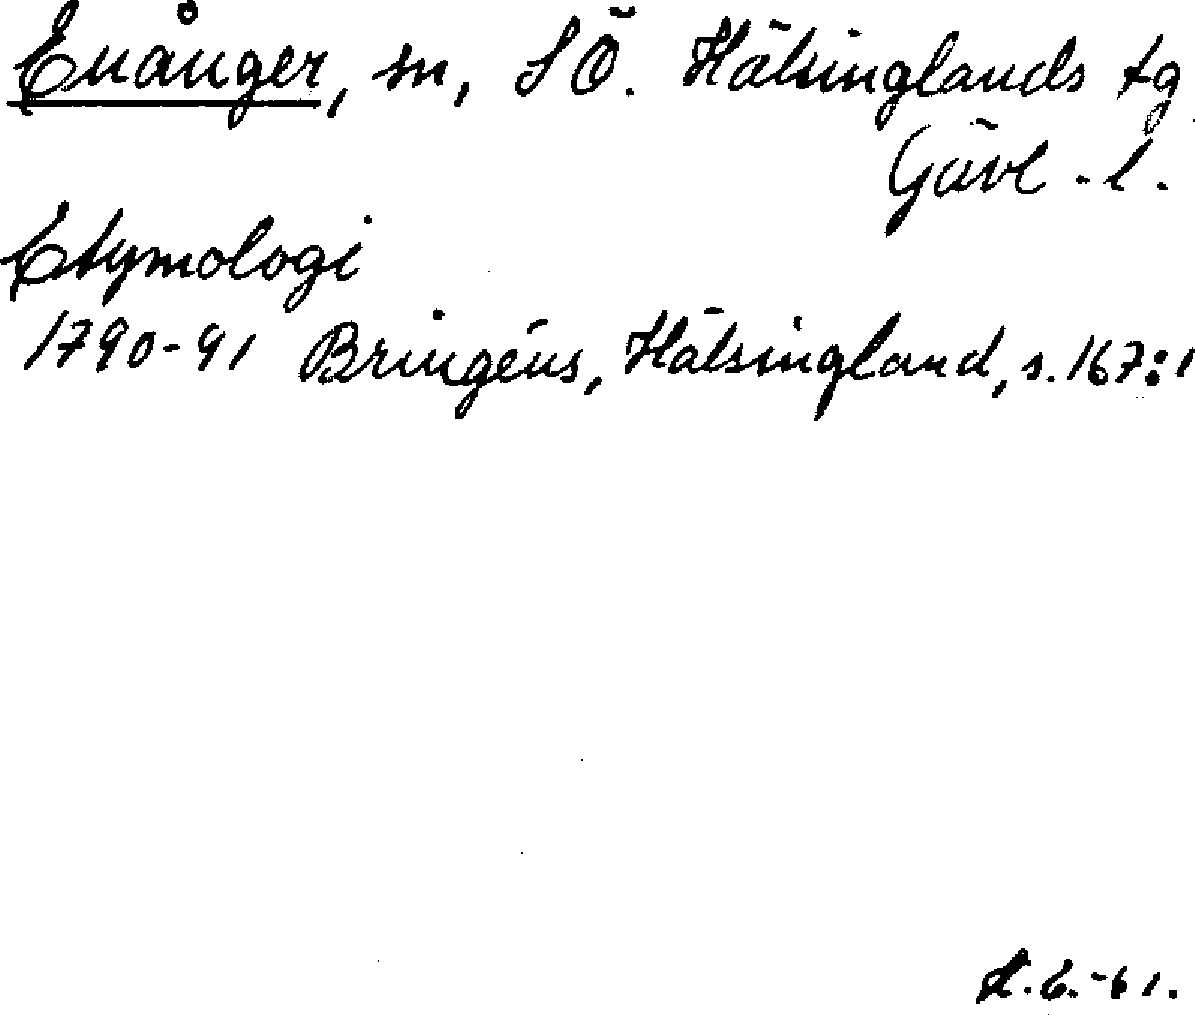 Enånger, sn, SÖ. Hälsinglands tg
Gävl. l.
Etymologi
1790-91 Bringéus, Hälsingland, s. 167:1
H.G.-61.